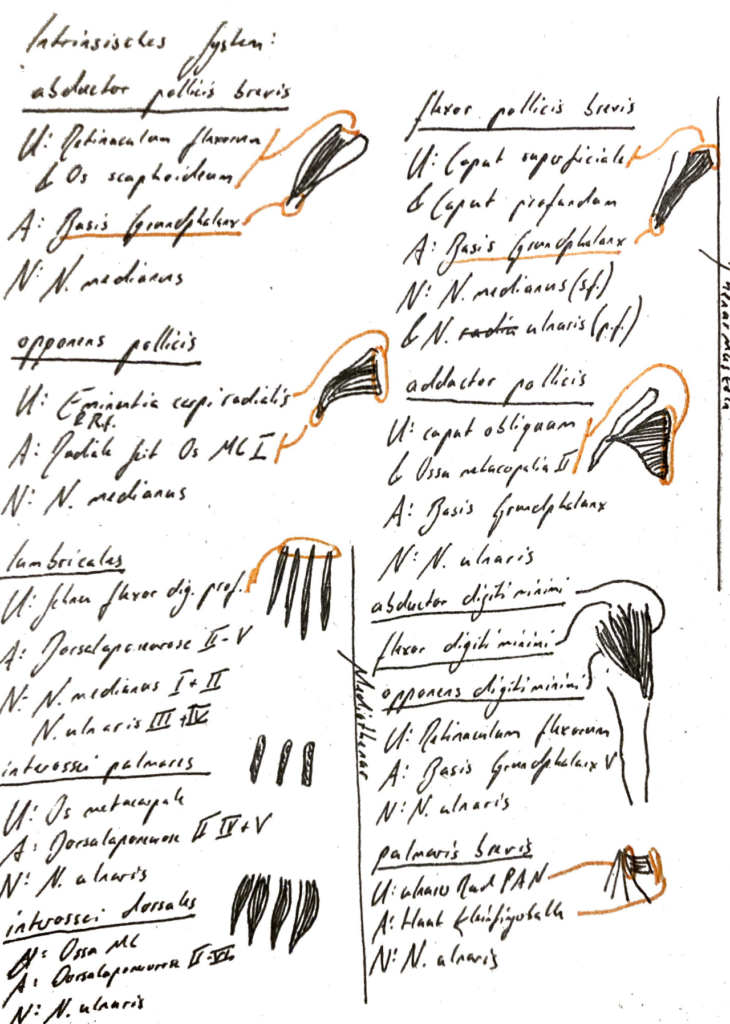 Intrinsisches System:
abductor pollicis brevis
U: Retinaculum flexorum
& Os scaphoideum
A: Basis Grundphalanx
N: N. medianus
opponens pollicis
U: Eminentia carpi radialis
& R.f.
A: Radiale Seit Os MC I
N: N. medianus
lumbricales
U: Sehne flexor dig. prof.
A: Dorsalaponeurose II-V
N: N. medianus I+II
N. ulnaris III+IV
interossei palmares
U: Os metacarpale
A: Dorsalaponeurose II IV+V
N: N. ulnaris
interossei dorsales
U: Ossa MC
A: Dorsalaponeurose
N: N. ulnaris
Mediothenar
flexor pollicis brevis
U: Caput superficiale
& Caput profundum
A: Basis Grundphalanx
N: N. medianus (s.f.)
& N. radia ulnaris (p.f.)
adductor pollicis
U: caput obliquum
& Ossa metacapalia II
A: Basis Grundphalanx
N: N. ulnaris
Thenar Muskeln
abductor digiti minimi
flexor digiti minimi
opponens digiti minimi
U: Retinaculum flexorum
A: Basis Grundphalanx V
N: N. ulnaris
palmaris brevis
U: ulnarer Rand PAN
A: Haut Kleinfingerballe
N: N. ulnaris